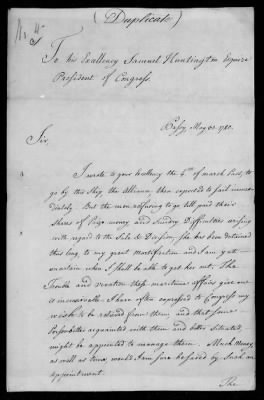 (Duplicate)
No. 4
To his Excellency Samuel Huntington Esquire
President of Congress
Passy, May 31. 1780.
Sir,
I wrote to your Excellency the 4th of march past, to
go by this Ship, the Alliance, then expected to sail imme-
diately. But the men refusing to go till paid their
Shares of Prize money, and Sundry Difficulties arising
with regard to the Sale & Division, she has been detained
thus long, to my great Mortification and I am yet
uncertain when I shall be able to get her out. The
Trouble and vexation these maritime affairs give me
is inconceivable. I have often expressed to Congress my
wish to be relieved from them, and that some
Person better acquainted with them and better situated,
might be appointed to manage them. Much Money,
as well as time, would I am sure be saved by such an
appointment.
The